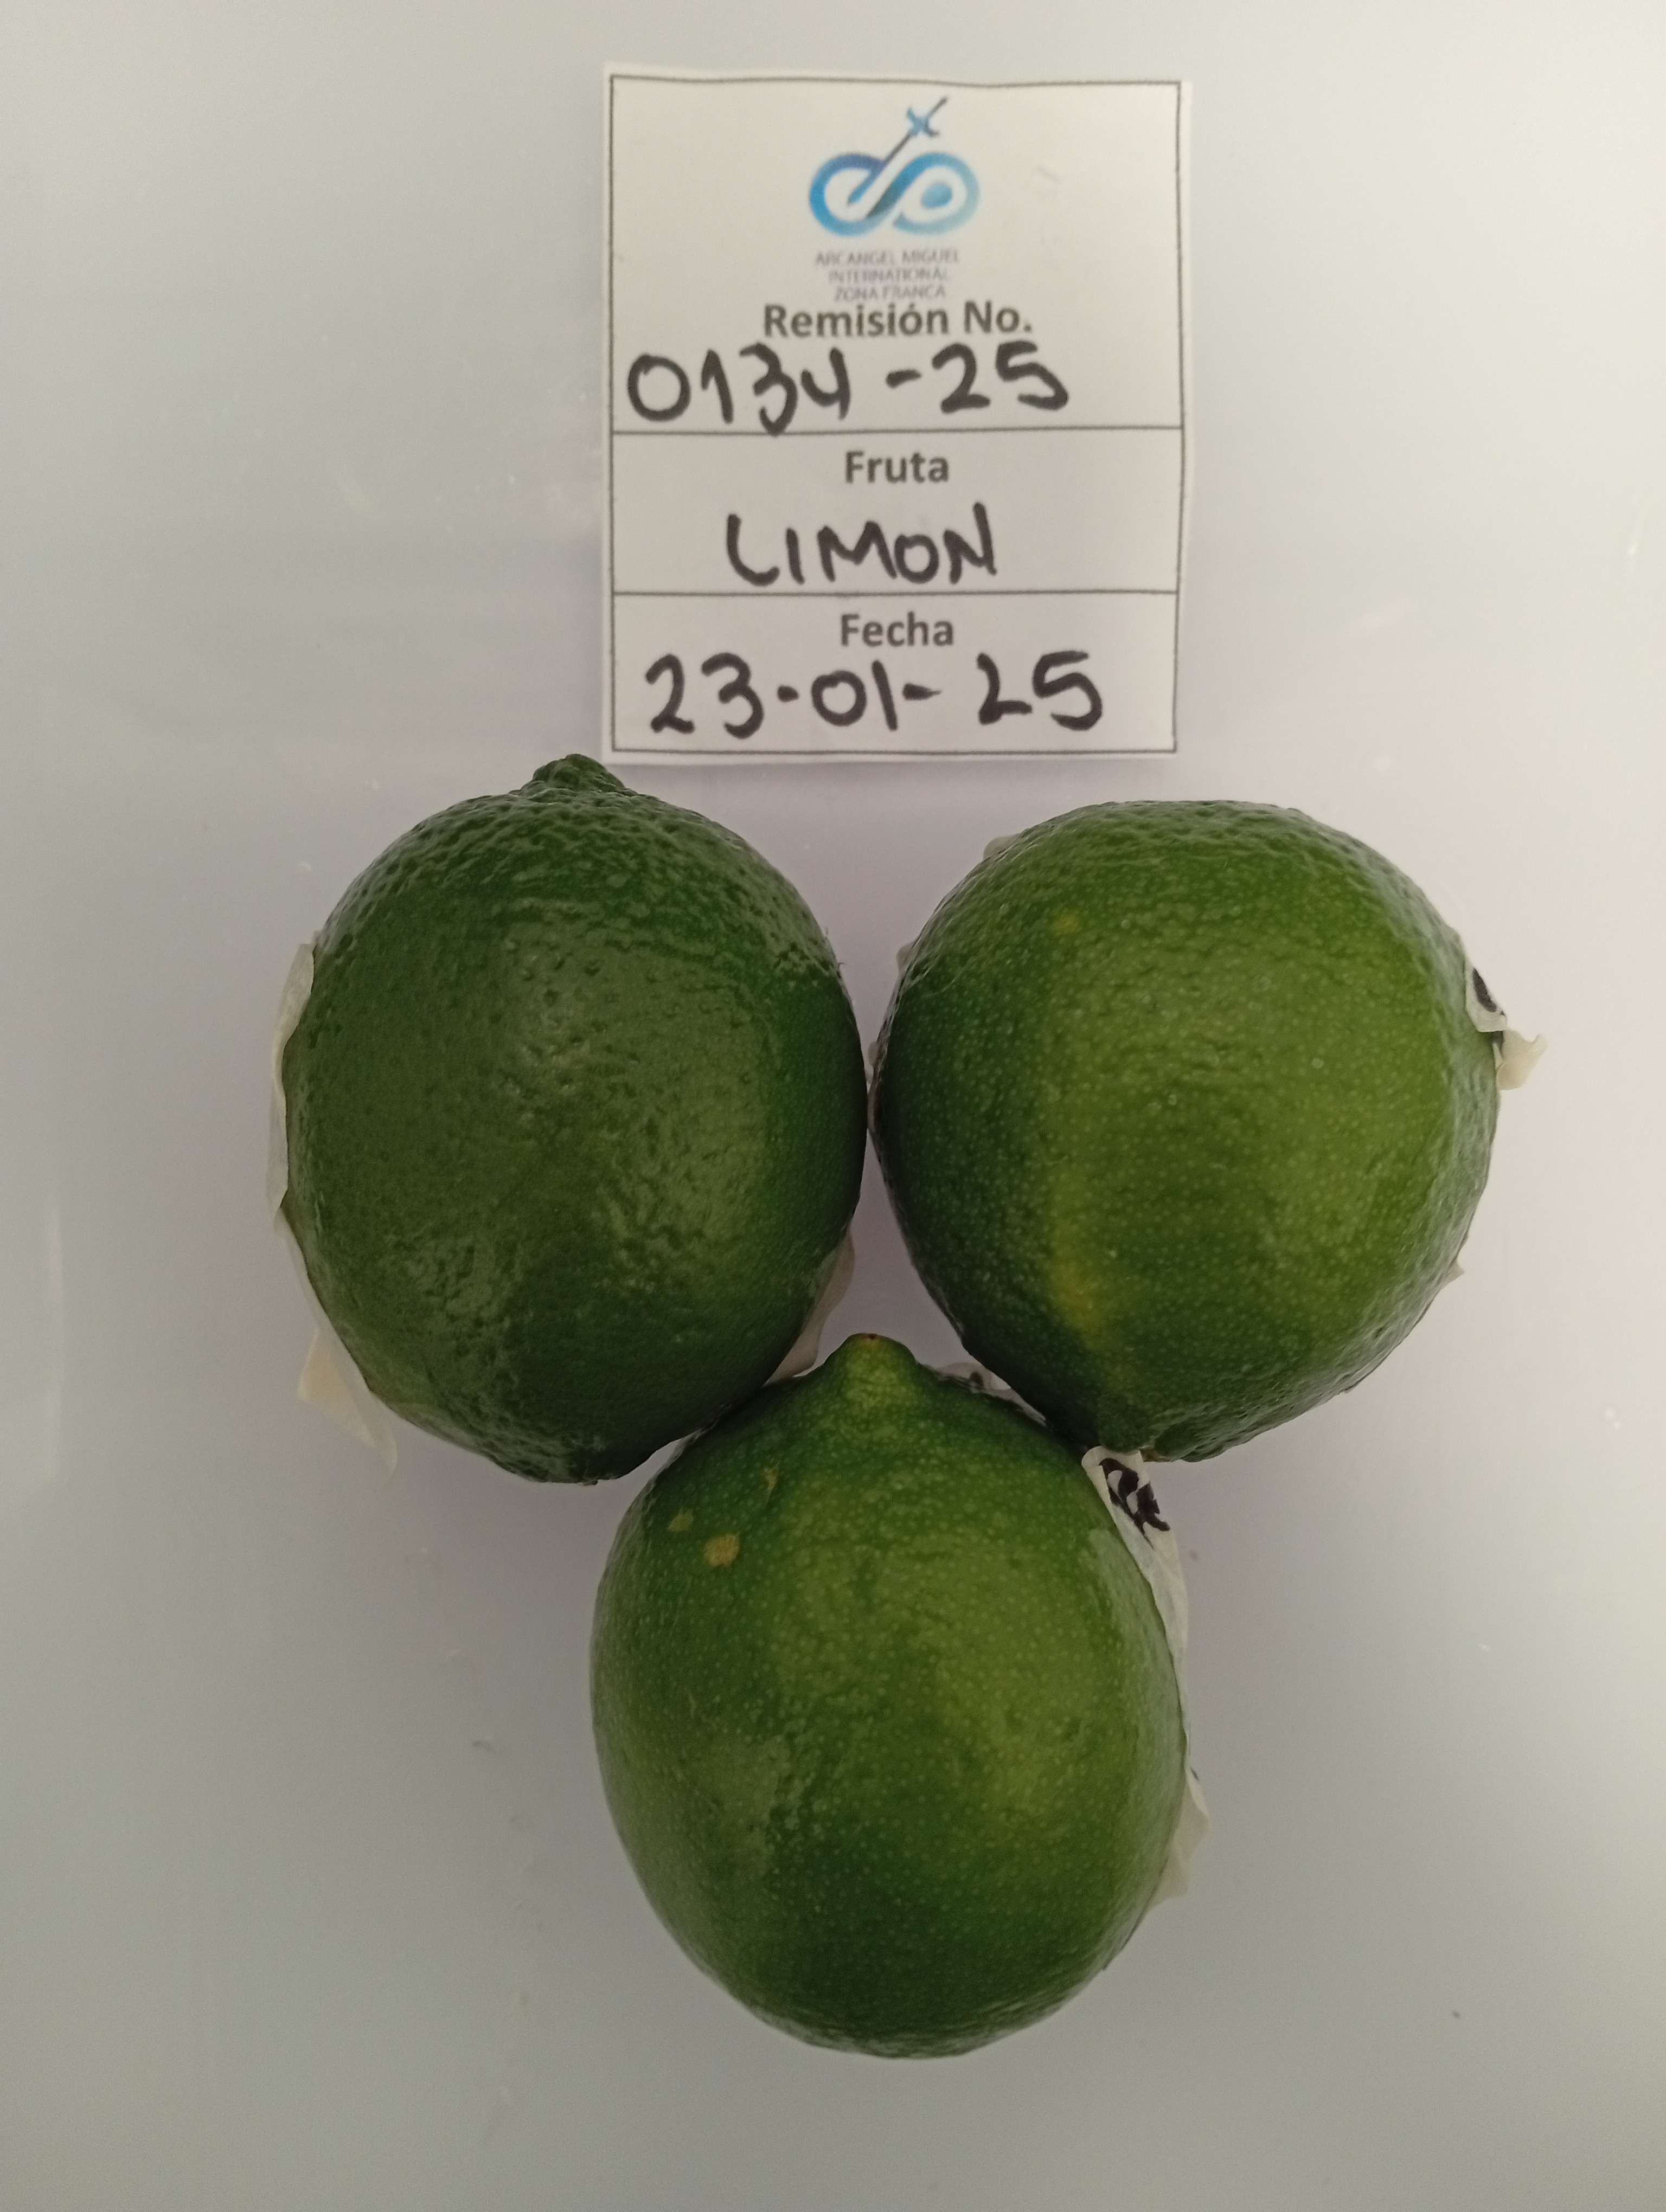 ARCANGEL MIGUEL
INTERNATIONAL
ZONA FRANCA
Remisión No.
0134-25
Fruta
LIMON
Fecha
23-01-25